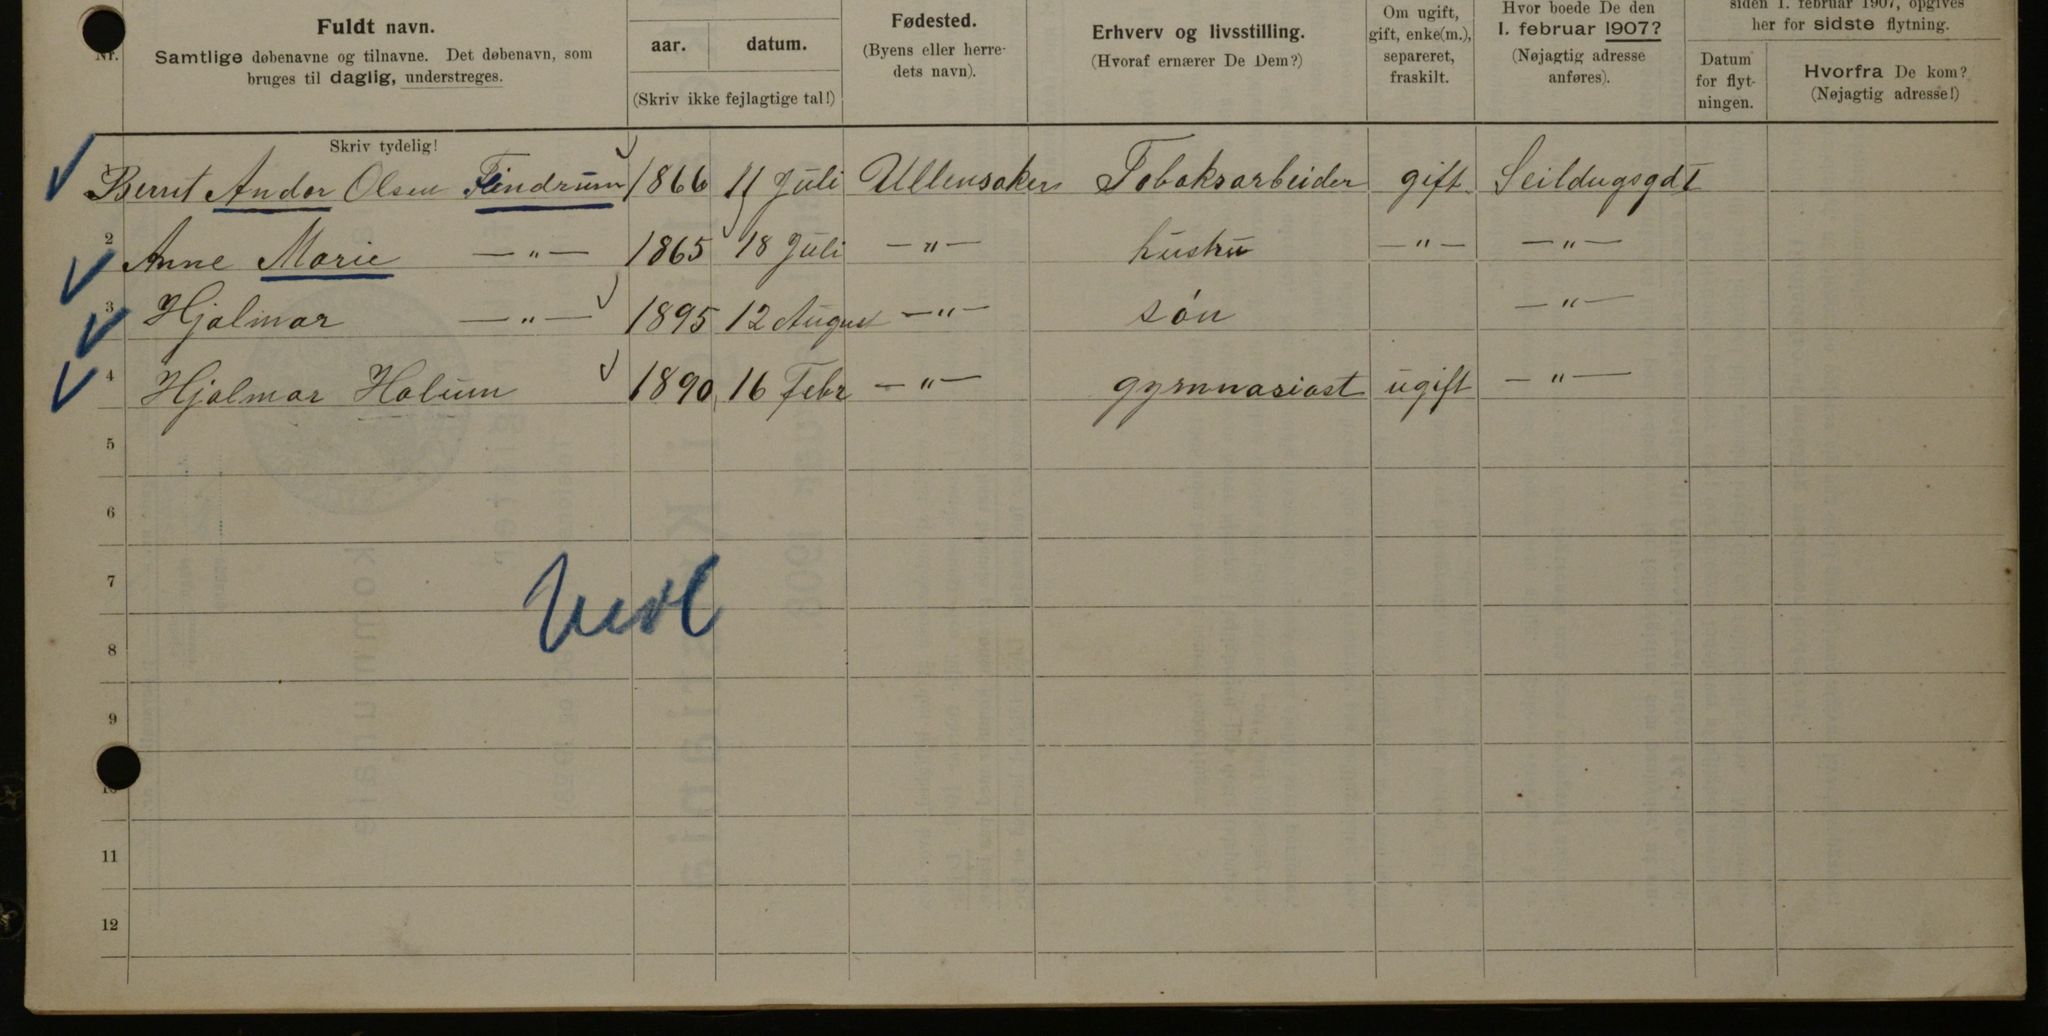 Nr.
Fuldt navn.
Samtlige døbenavne og tilnavne. Det døbenavn, som
bruges til daglig, understreges.
aar.
datum.
(Skriv ikke fejlagtige tal!)
Fødested.
(Byens eller herre-
dets navn).
Erhverv og livsstilling.
(Hvoraf ernærer De Dem?)
Om ugift,
gift, enke(m.),
separeret,
fraskilt.
Hvor boede De den
1. februar 1907?
(Nøjagtig adresse
anføres).
siden 1. februar 1907, opgives
her for sidste flytning.
Datum
for flyt-
ningen.
Hvorfra De kom?
(Nøjagtig adresse!)
Skriv tydelig!
1 Bernt Andor Olsen Findrum 1866 11 Juli Ullensaker Tobaksarbeider gift Seildugsgd 1
2 Anne Marie — " — 1865 18 Juli — " — hustru — " — — " —
3 Hjalmar — " — 1895 12 August — " — søn — " —
4 Hjalmar Holum 1890 16 Febr — " — gymnasiast ugift — " —
5
6
7
8
9
10
11
12